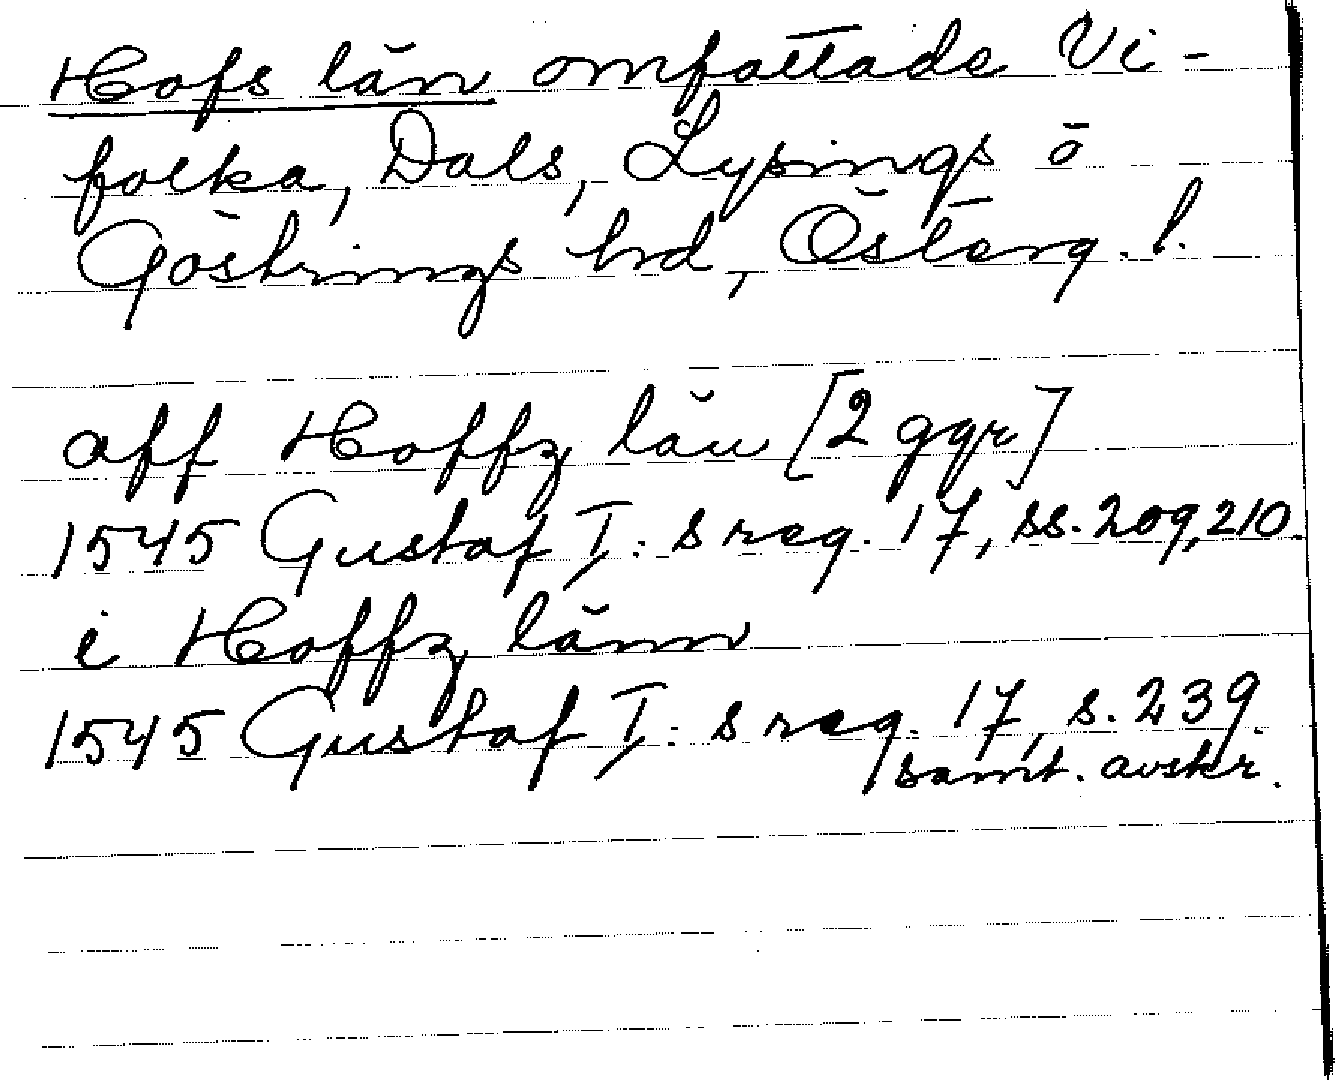 Hofs län omfattade Vi-
folka, Dals, Lysings o
Göstrings hd, Österg. l.
aff Hoffz län [2 ggr]
1545 Gustaf I:s reg. 17, ss. 209, 210.
i Hoffz länn
1545 Gustaf I:s reg. 17, s. 239.
samt. avskr.